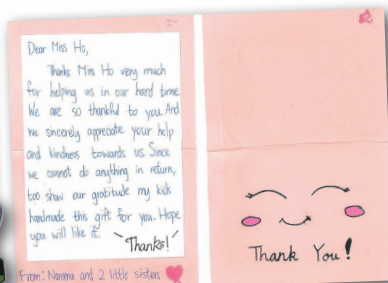 Dear Miss Ho,
Thanks Miss Ho very much
for helping us in our hard time.
We are so thankful to you. And
we sincerely appreciate your help
and kindness towards us. Since
we cannot do anything in return,
too show our gratitude my kids
handmade this gift for you. Hope
you will like it.
Thanks!
From: and 2 little sisters
Thank You!